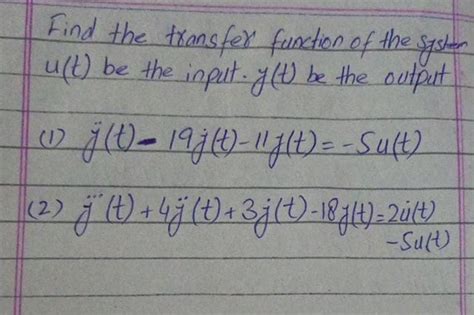 Find the transfer function of the system
u(t) be the input. y(t) be the output
(1) ÿ(t) - 19ẏ(t) - 11y(t) = -5u(t)
(2) y⃛(t) + 4ÿ(t) + 3ẏ(t) - 18y(t) = 2u̇(t)
-5u(t)